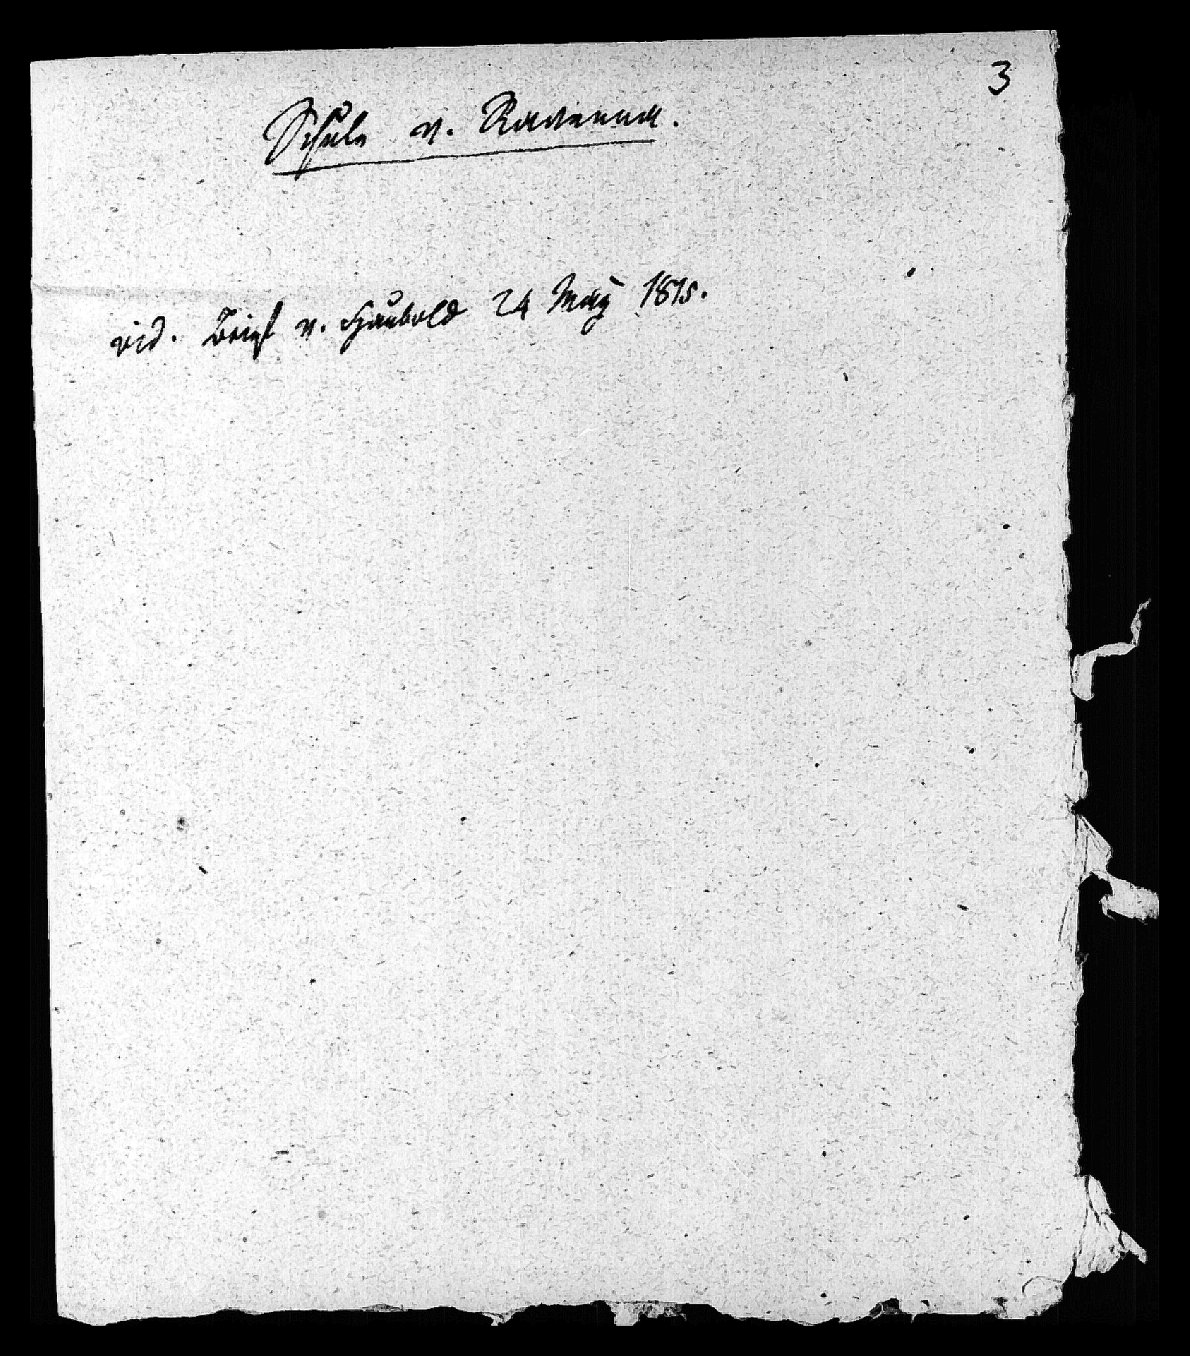 3
Schule v. Ravenna.
vid. Brief v. Haubold 24 May 1815.